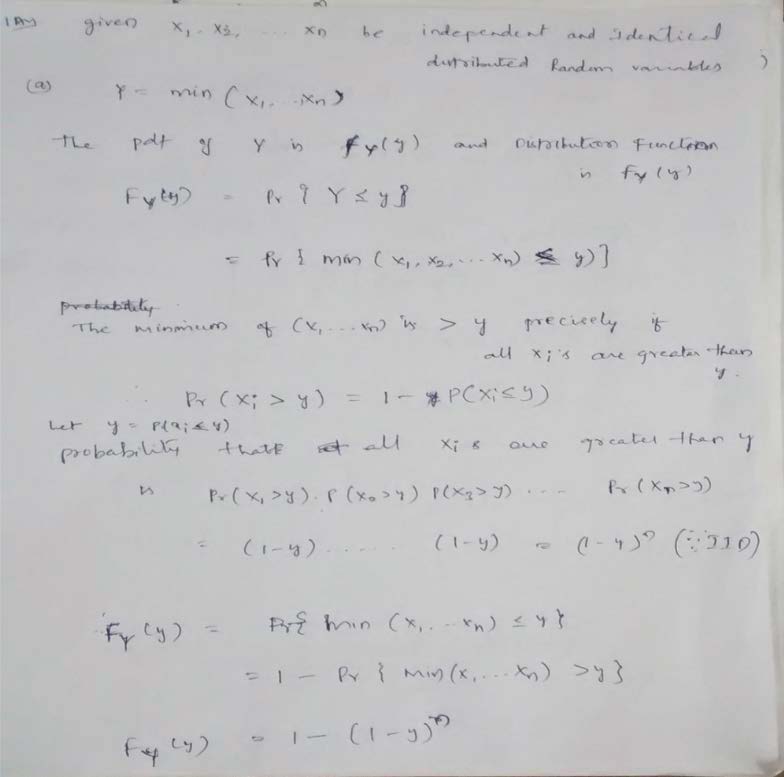 1A) given x₁, x₂, ... xn be independent and identical
distributed Random variables )
(a) Y = min (x₁, ... xn)
The pdf of Y is fy(y) and Distribution Function
is Fy(y)
Fy(y) = Pr { Y ≤ y }
= Pr { min (x₁, x₂, ... xn) ≤ y) }
probability
The minimum of (x₁, ... xn) is > y precisely if
all xi's are greater than
y.
Pr (xi > y) = 1 - P(xi ≤ y)
Let y = P(xi ≤ y)
probability that all xi s are greater than y
is Pr(x₁ > y). P(x₂ > y) P(x₃ > y) .... Pr(xn > y)
= (1-y) ..... (1-y) = (1-y)ⁿ (∵ IID)
Fy(y) = Pr{ min (x₁, ... xn) ≤ y }
= 1 - Pr { min(x₁, ... xn) > y }
Fy(y) = 1 - (1-y)ⁿ